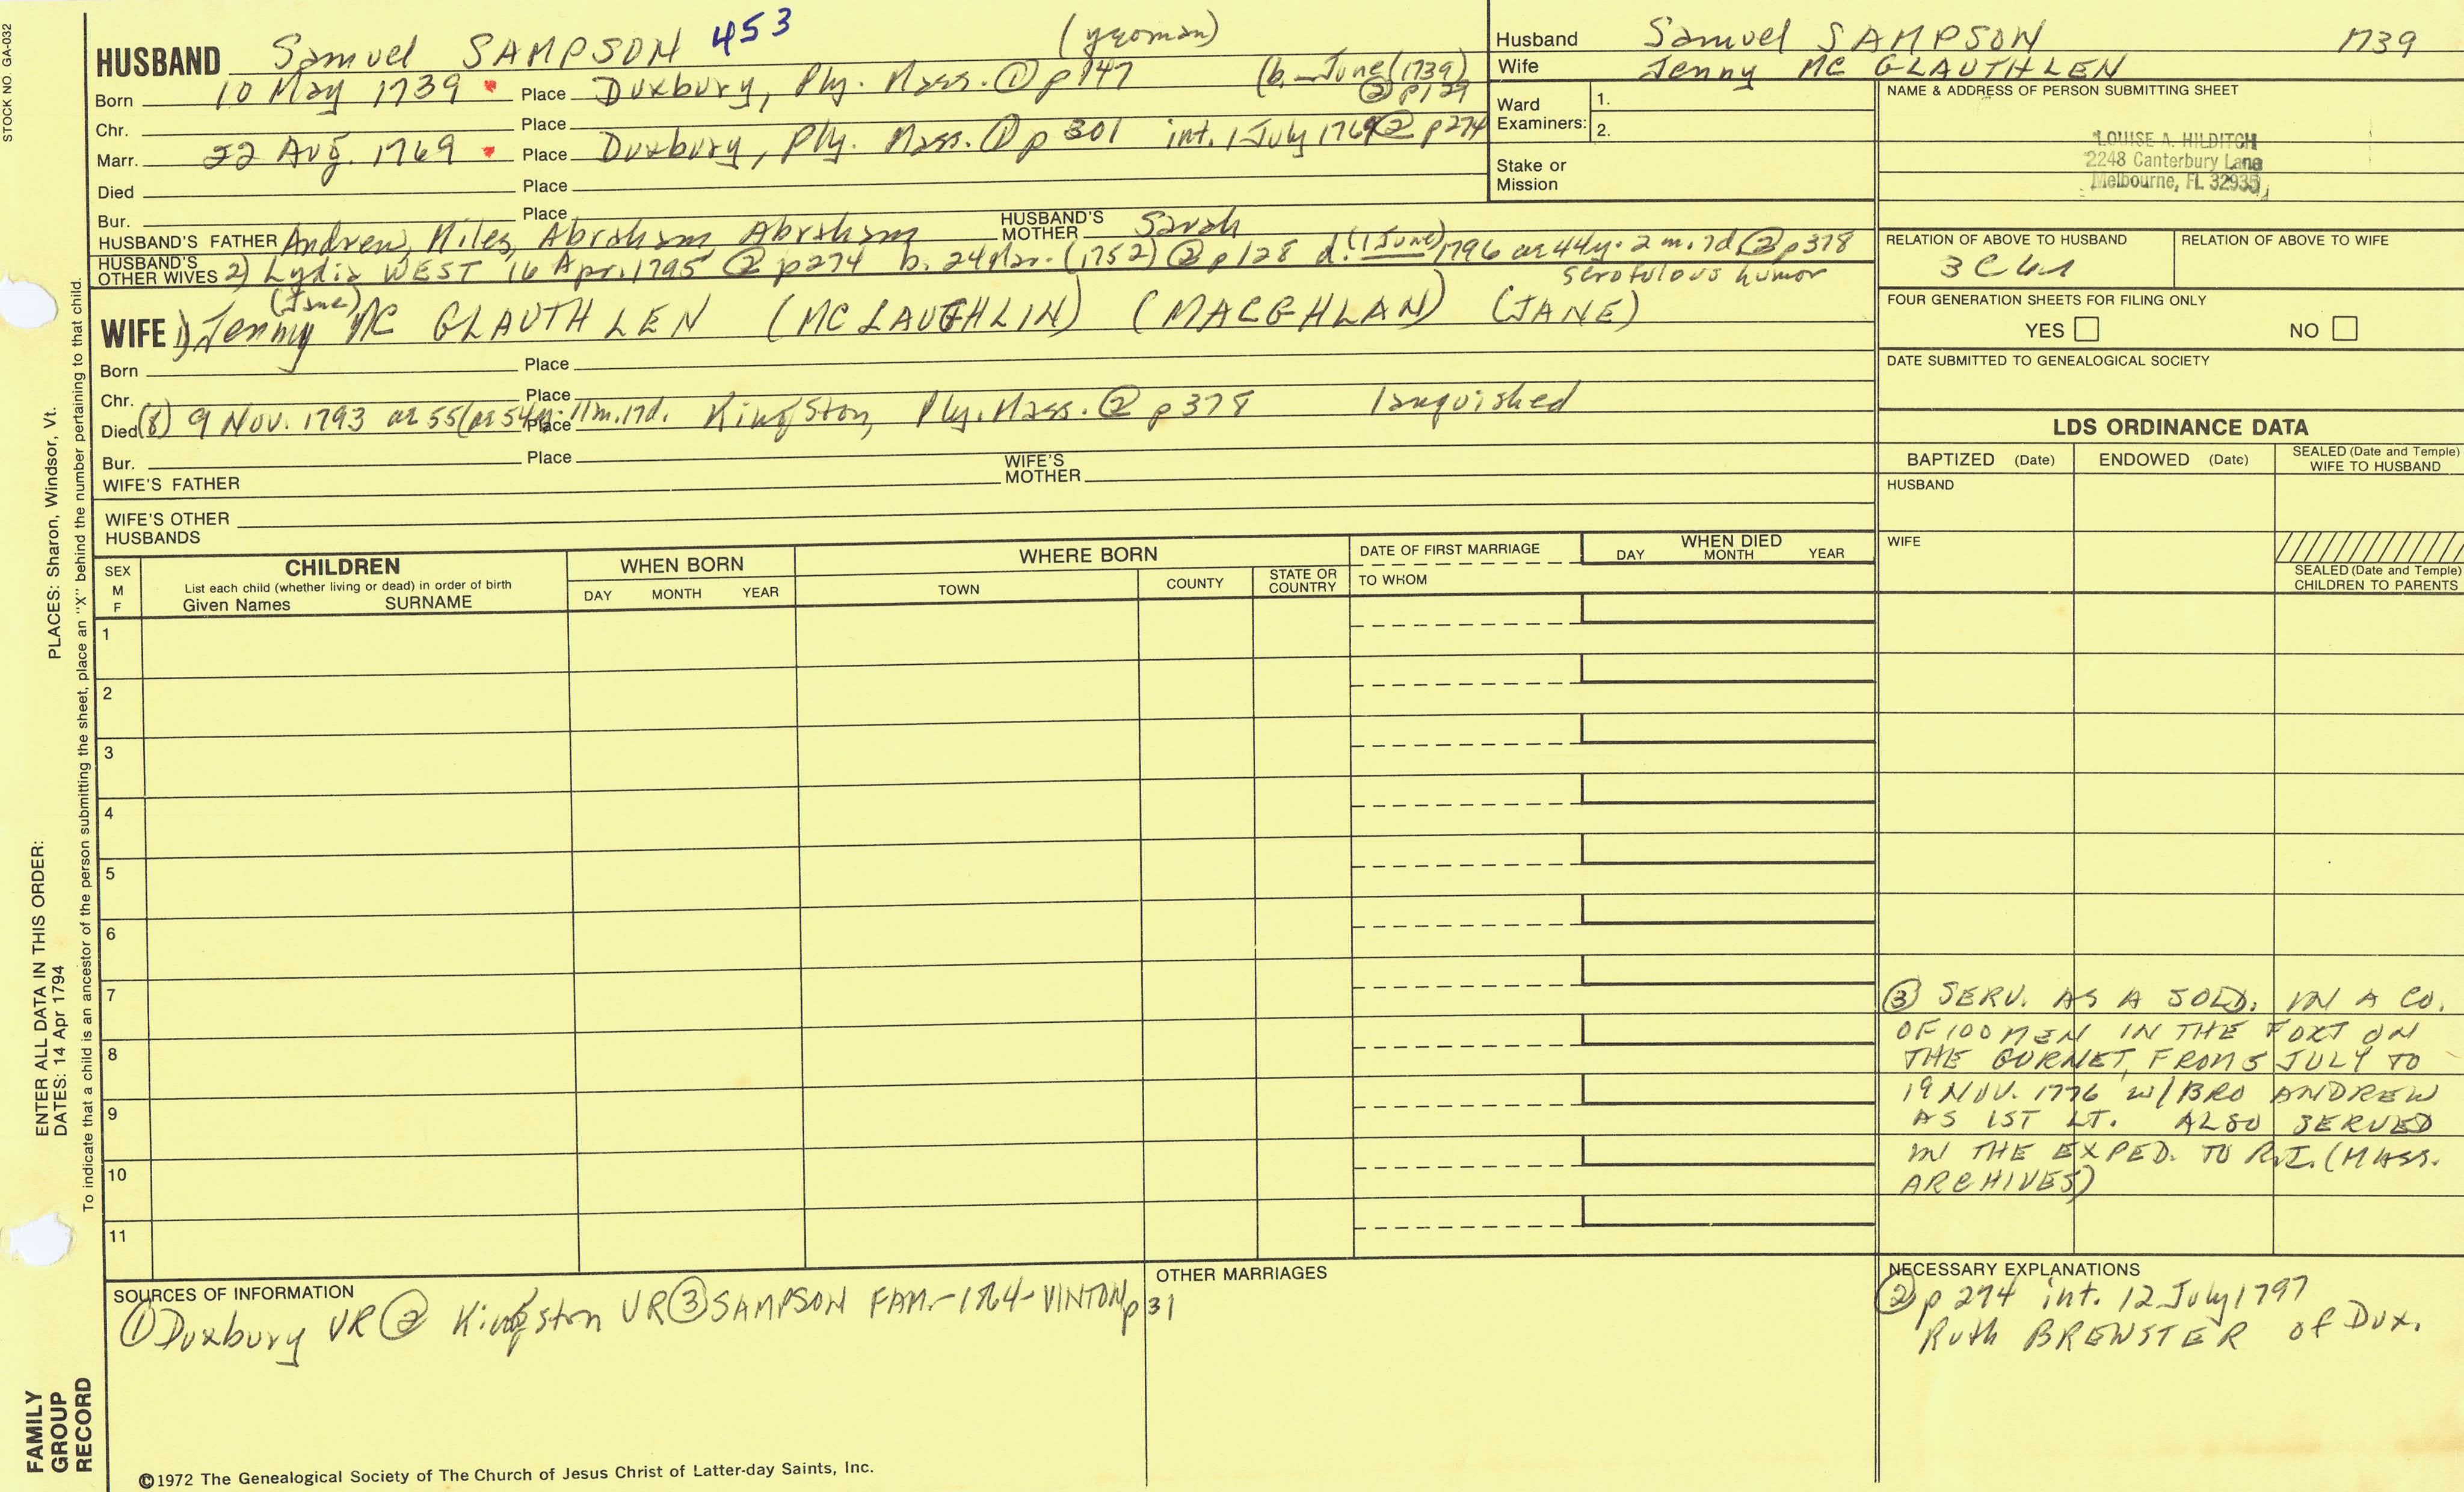 STOCK NO. GA-032
HUSBAND Samuel SAMPSON 453 (yeoman)
Born 10 May 1739 Place Duxbury, Ply. Mass. ① p147 (b. — June (1739) ② p129
Chr. Place
Marr. 22 Aug. 1769 Place Duxbury, Ply. Mass. ① p 301 int. 1 July 1769 ② p274
Died Place
Bur. Place
HUSBAND'S FATHER Andrew, Miles, Abraham, Abraham HUSBAND'S MOTHER Sarah
HUSBAND'S OTHER WIVES 2) Lydia WEST 16 Apr. 1795 ② p274 b. 24 Mar. (1752) ② p128 d. (1 June) 1796 ae 44y. 2 m. 7d ② p378
scrofulous humor
(Jane)
WIFE 1) Jenny MC GLAUTHLEN (MCLAUGHLIN) (MACGHLAN) (JANE)
Born Place
Chr. Place
Died (8) 9 Nov. 1793 ae 55 (ae 54y. 11m. 17d. Place Kingston, Ply. Mass. ② p378 languished
Bur. Place
WIFE'S FATHER WIFE'S MOTHER
WIFE'S OTHER HUSBANDS
Husband Samuel SAMPSON 1739
Wife Jenny MC GLAUTHLEN
Ward Examiners: 1.
2.
Stake or Mission
NAME & ADDRESS OF PERSON SUBMITTING SHEET
LOUISE A. HILDITCH
2248 Canterbury Lane
Melbourne, FL 32935
RELATION OF ABOVE TO HUSBAND RELATION OF ABOVE TO WIFE
FOUR GENERATION SHEETS FOR FILING ONLY
YES NO
DATE SUBMITTED TO GENEALOGICAL SOCIETY
LDS ORDINANCE DATA
BAPTIZED (Date) ENDOWED (Date) SEALED (Date and Temple) WIFE TO HUSBAND
HUSBAND
WIFE
SEALED (Date and Temple) CHILDREN TO PARENTS
SEX M F
CHILDREN
List each child (whether living or dead) in order of birth
Given Names SURNAME
WHEN BORN
DAY MONTH YEAR
WHERE BORN
TOWN COUNTY STATE OR COUNTRY
DATE OF FIRST MARRIAGE
TO WHOM
WHEN DIED
DAY MONTH YEAR
1
2
3
4
5
6
7
8
9
10
11
③ SERV. AS A SOLD. IN A CO.
OF 100 MEN IN THE FORT ON
THE GURNET, FROM 5 JULY TO
19 NOV. 1776 W/BRO ANDREW
AS 1ST LT. ALSO SERVED
IN THE EXPED. TO R.I. (MASS.
ARCHIVES)
SOURCES OF INFORMATION
① Duxbury VR ② Kingston VR ③ SAMPSON FAM.-1864-VINTON p 31
OTHER MARRIAGES
NECESSARY EXPLANATIONS
② p 274 int. 12 July 1797
Ruth BREWSTER of Dux.
©1972 The Genealogical Society of The Church of Jesus Christ of Latter-day Saints, Inc.
ENTER ALL DATA IN THIS ORDER: PLACES: Sharon, Windsor, Vt.
DATES: 14 Apr 1794
To indicate that a child is an ancestor of the person submitting the sheet, place an "X" behind the number pertaining to that child.
FAMILY
GROUP
RECORD